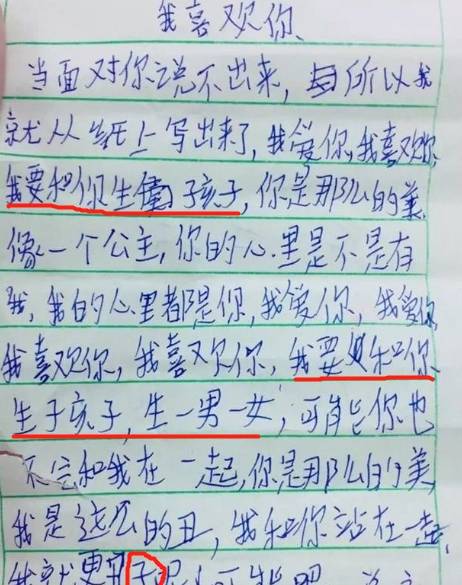 我喜欢你
当面对你说不出来,所以我
就从纸上写出来了,我爱你,我喜欢你,
我要和你生孩子,你是那么的美,
像一个公主,你的心里是不是有
我,我的心里都是你,我爱你,我爱你,
我喜欢你,我喜欢你,我要和你
生子孩子,生一男一女,可能你也
不会和我在一起,你是那么的美,
我是这么的丑,我和你站在一起,
我就更